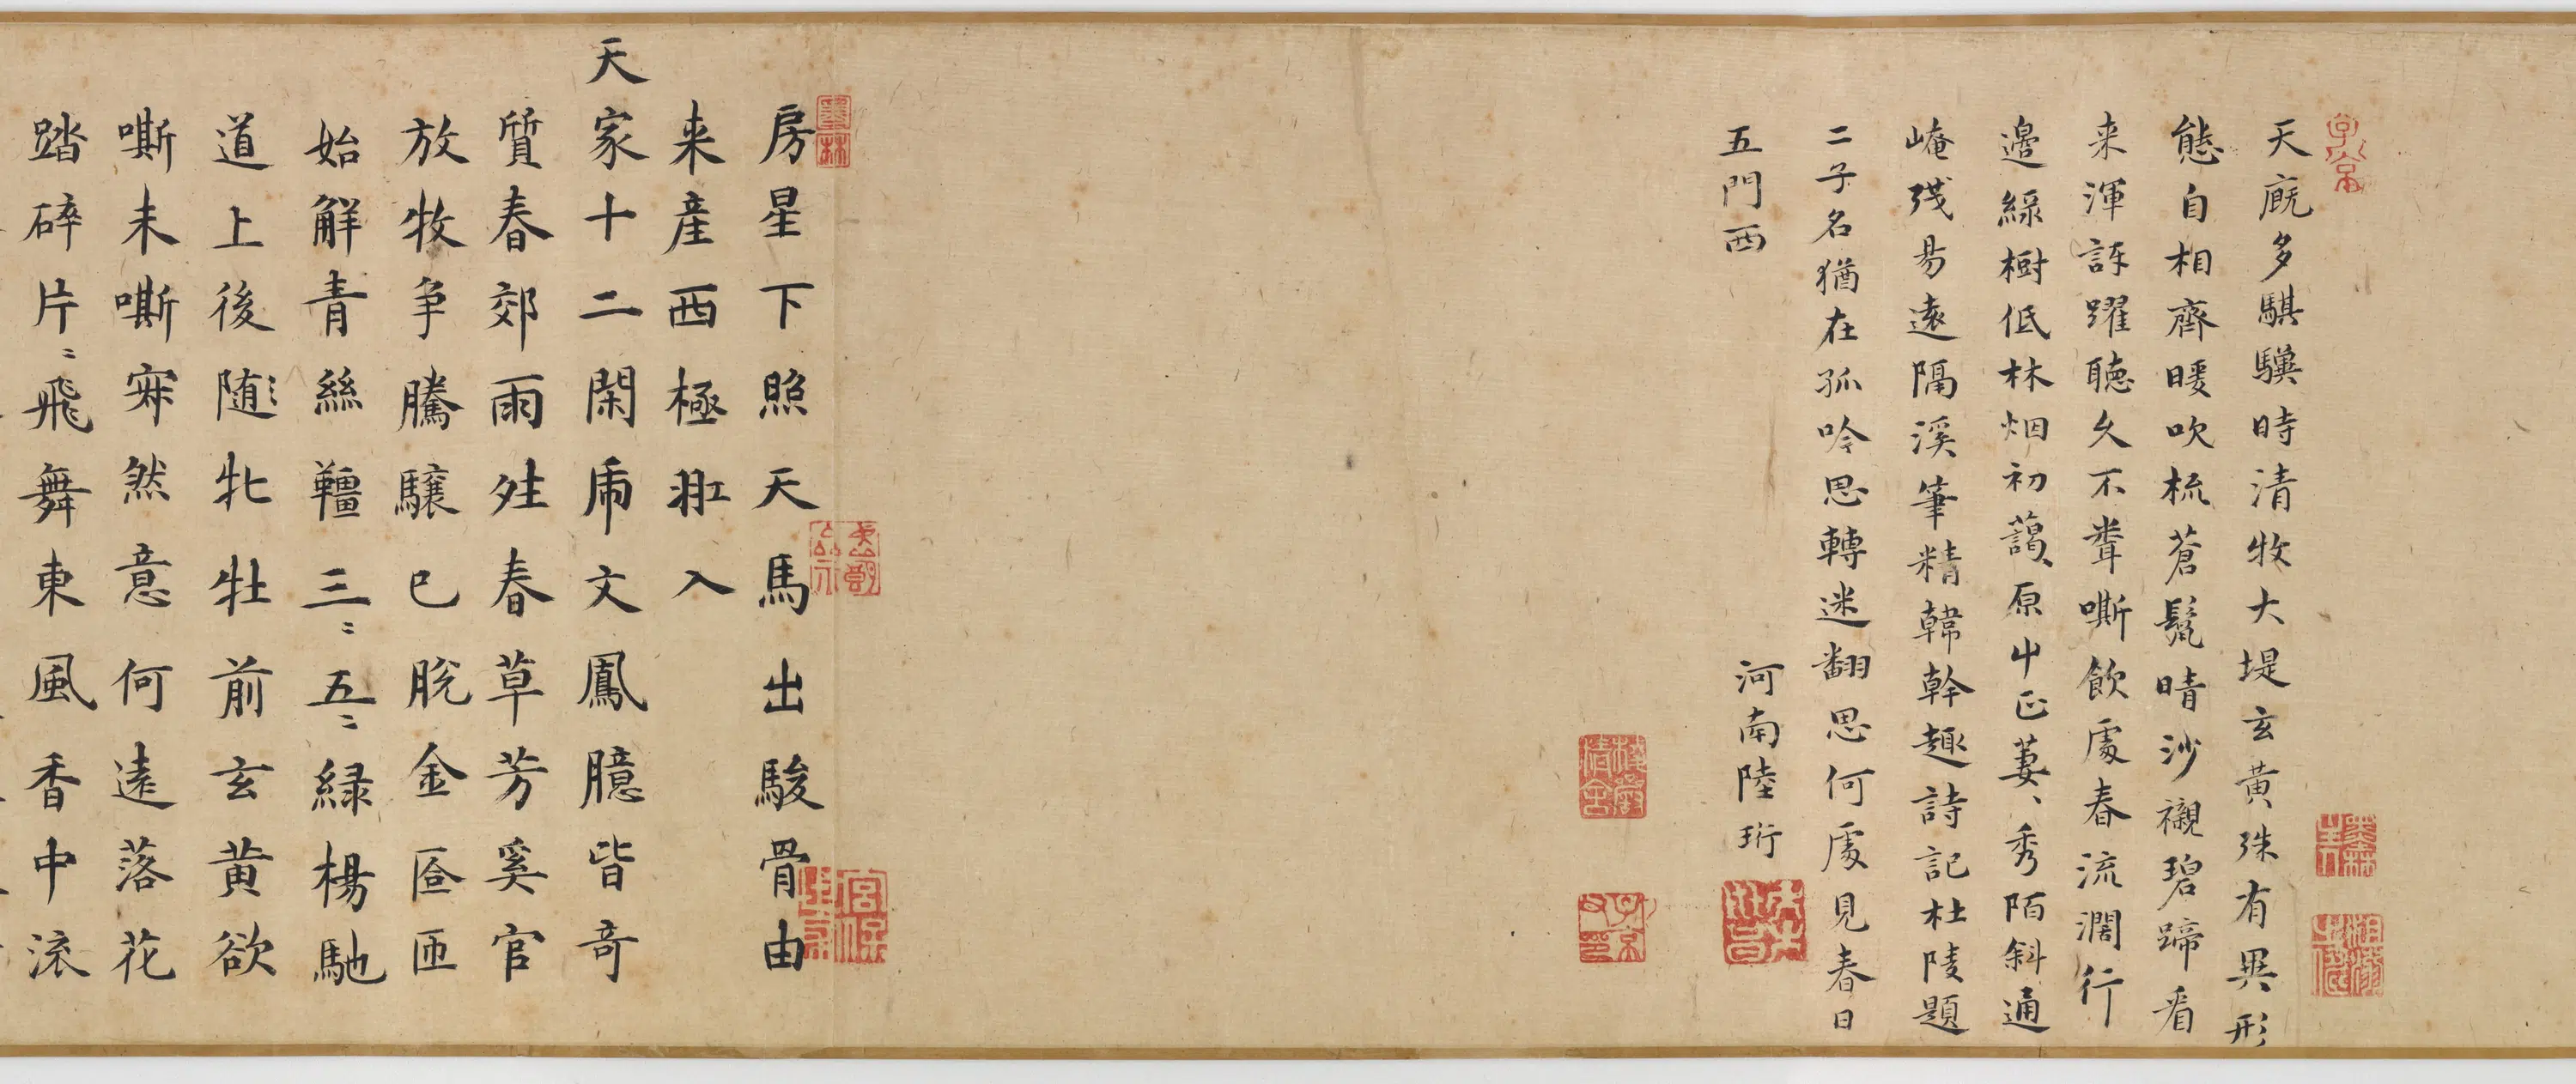 天廐多騏驥時清牧大堤玄黃殊有異形
態自相齊暖吹梳蒼鬣晴沙襯碧蹄看
来渾訝躍聽久不聋嘶飲處春流濶行
邊緑樹低林烟初藹、原屮正萋、秀陌斜通
崦殘易遠隔溪筆精韓幹趣詩記杜陵題
二子名猶在孤吟思轉迷翻思何處見春日
五門西
河南陸珩
房星下照天馬出駿骨由
来産西極羾入
天家十二閑虎文鳳臆皆奇
質春郊雨歇春草芳奚官
放牧争騰驤已脫金匼匝
始解青絲韁三〻五〻緑楊馳
道上後随牝牡前玄黄欲
嘶未嘶寂然意何遠落花
踏碎片〻飛舞東風香中流